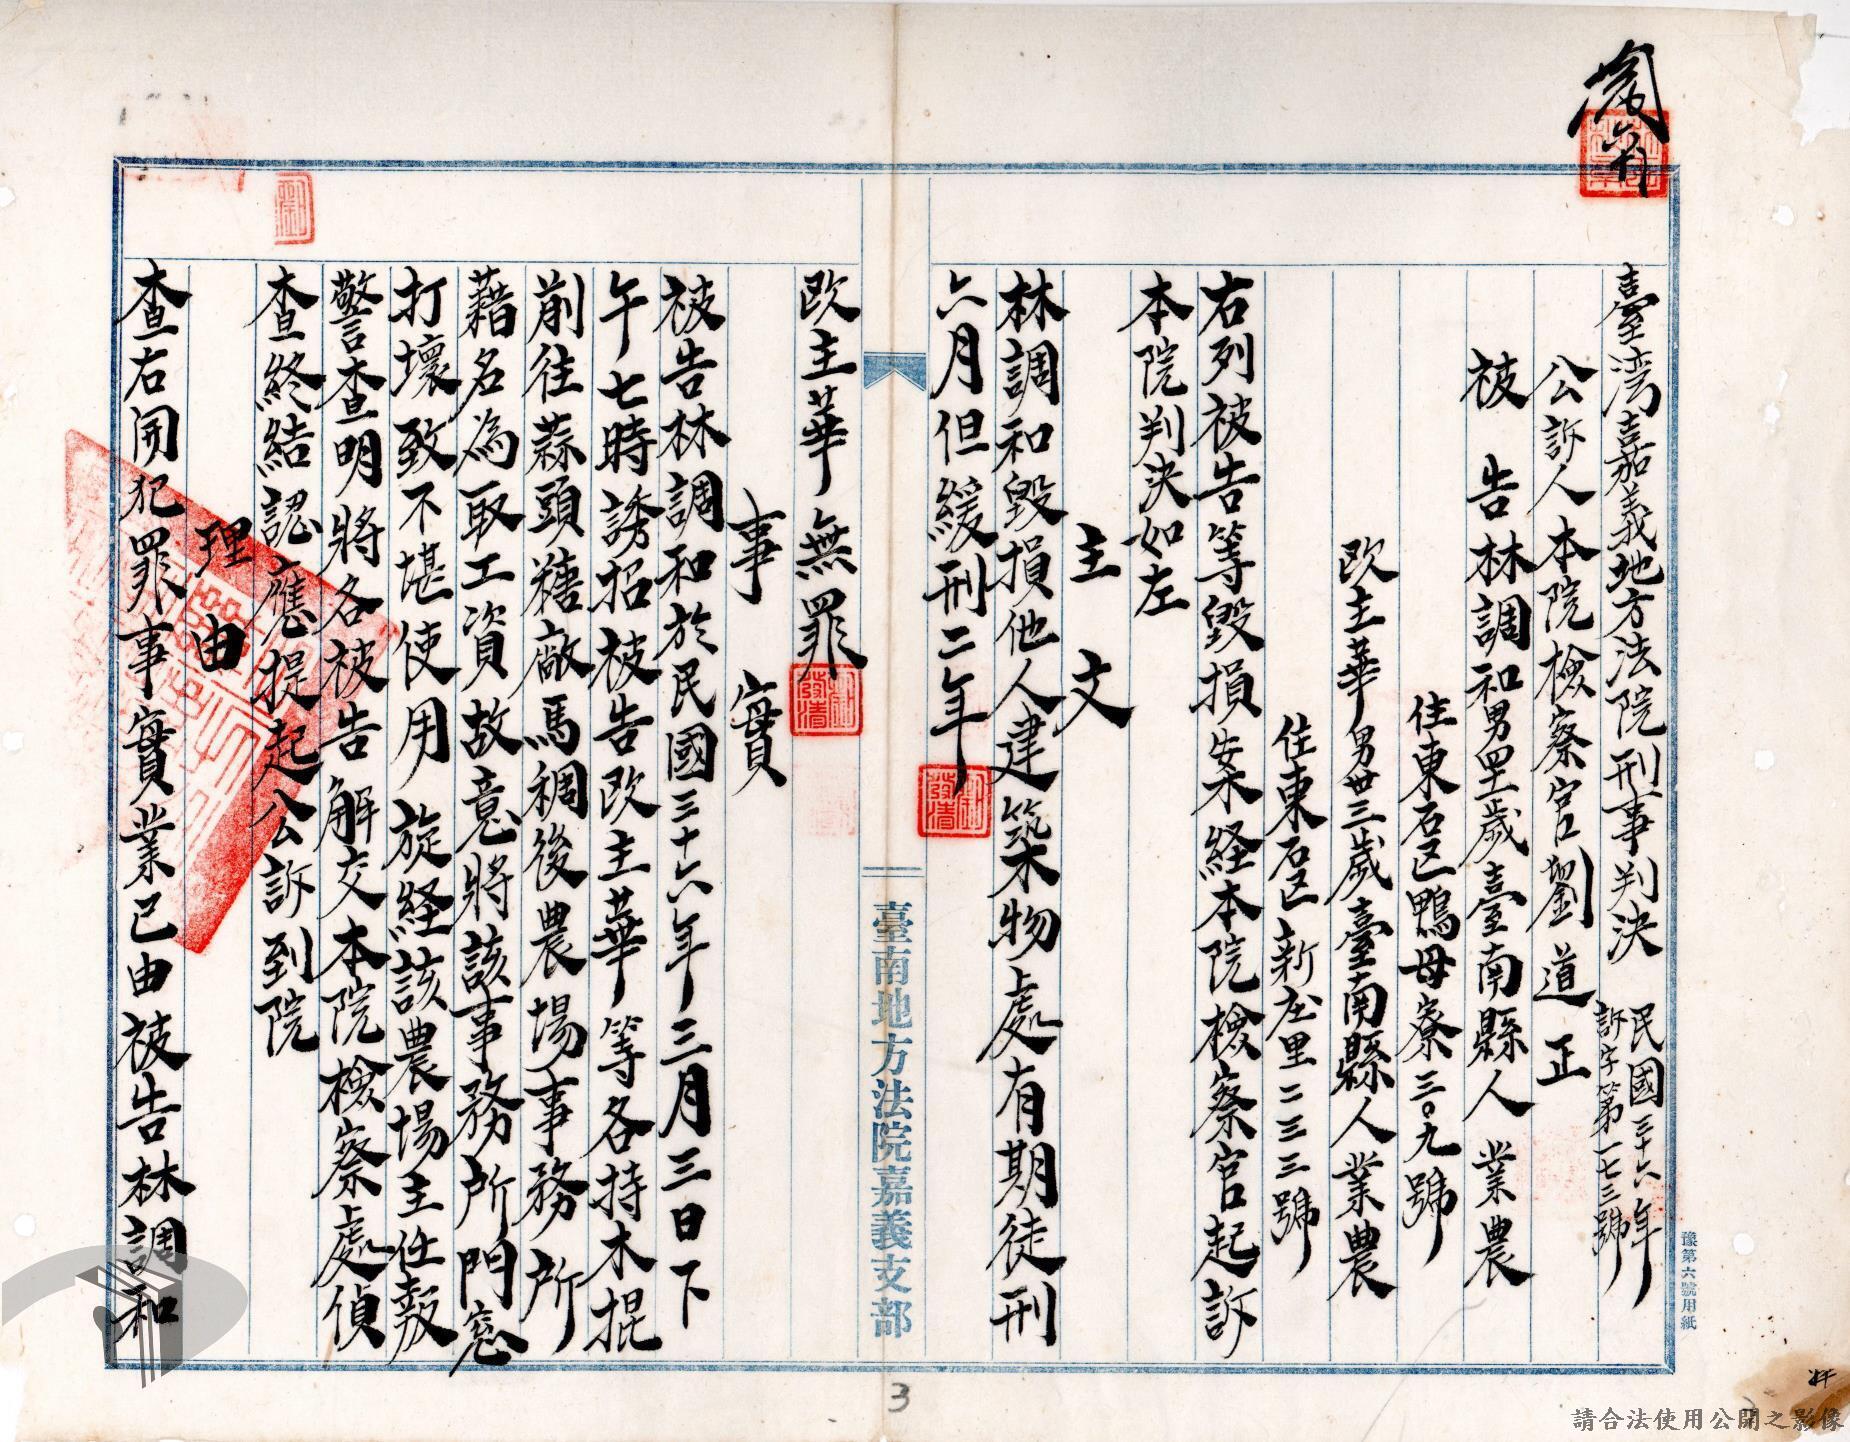 臺湾嘉義地方法院刑事判決
民國三十六年
訴字第一七三號
公訴人本院檢察官劉道正
被告林調和男四歲臺南縣人業農
住東石区鴨母寮三〇九號
欧主華男卅三歲臺南縣人業農
住東石区新庄里二三三號
右列被告等毀損案経本院檢察官起訴
本院判決如左
主文
林調和毀損他人建築物處有期徒刑
六月但緩刑二年
欧主華無罪
事實
被告林調和於民國三十六年三月三日下
午七時誘招被告欧主華等各持木棍
前往蒜頭糖廠馬稠後農場事務所
藉名為取工資故意將該事務所門窓
打壞致不堪使用旋経該農場主任報
警查明將各被告解交本院檢察處偵
查終結認應提起公訴到院
理由
查右開犯罪事實業已由被告林調和
臺南地方法院嘉義支部
豫第六號用紙
3
請合法使用公開之影像